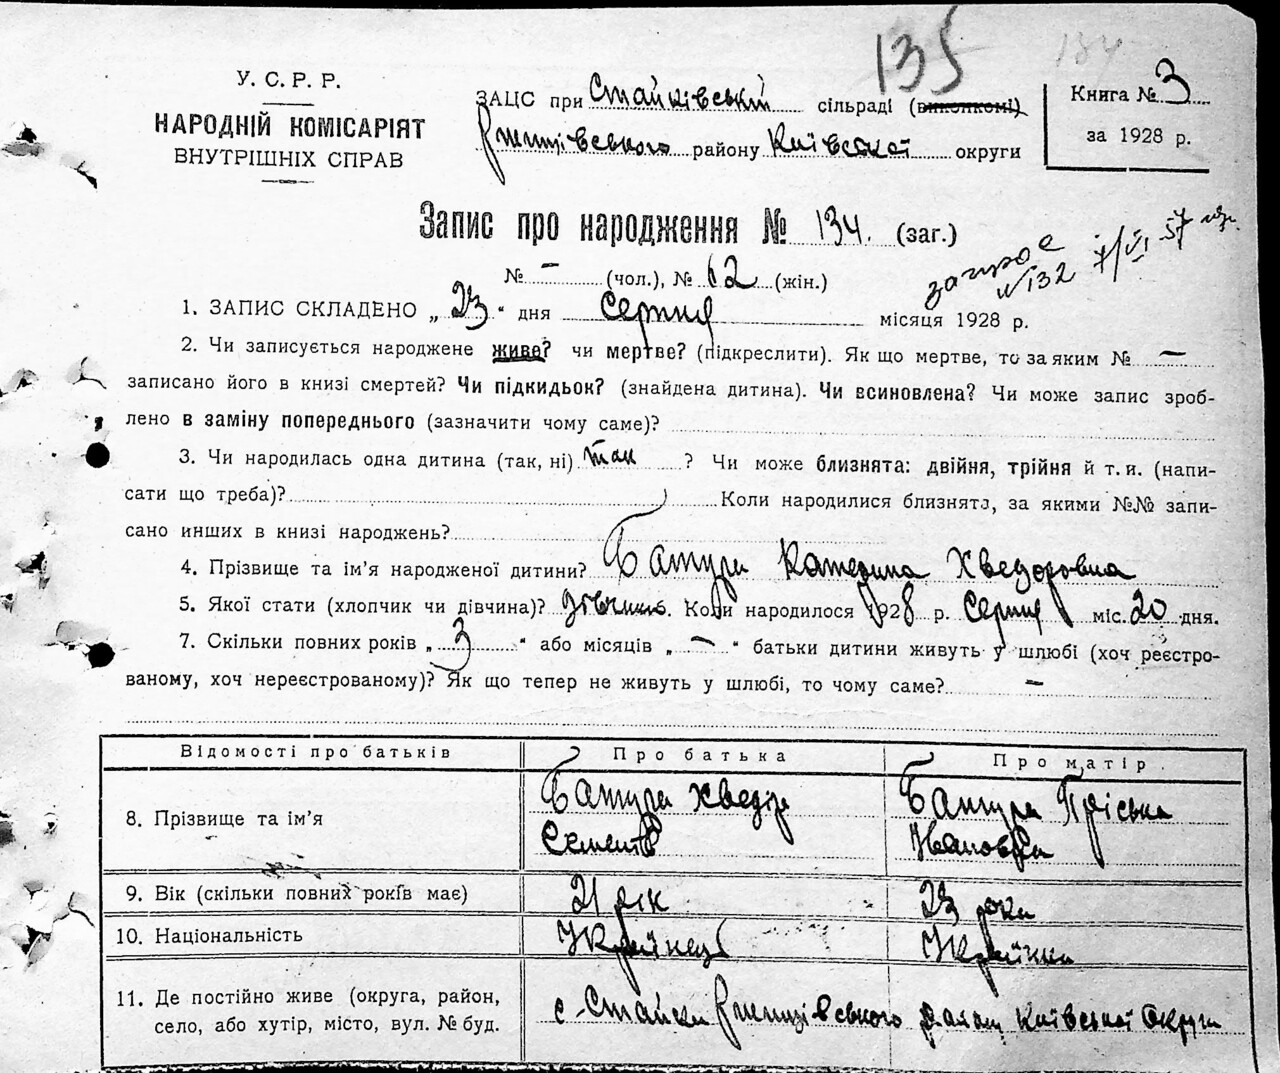 135
134
У. С. Р. Р.
НАРОДНІЙ КОМІСАРІЯТ
ВНУТРІШНІХ СПРАВ
ЗАЦС при Стайківській сільраді (виконкомі)
Ржищівського району Київської округи
Книга № 3
за 1928 р.
Запис про народження № 134. (заг.)
№ – (чол.), № 62 (жін.)
№ 132
1. ЗАПИС СКЛАДЕНО „ 23 “ дня Серпня місяця 1928 р.
2. Чи записується народжене живе? чи мертве? (підкреслити). Як що мертве, то за яким № –
записано його в книзі смертей? Чи підкидьок? (знайдена дитина). Чи всиновлена? Чи може запис зроб-
лено в заміну попереднього (зазначити чому саме)?
3. Чи народилась одна дитина (так, ні) так ? Чи може близнята: двійня, трійня й т. и. (напи-
сати що треба)? Коли народилися близнята, за якими №№ запи-
сано инших в книзі народжень?
4. Прізвище та ім'я народженої дитини? Батура Катерина Хведоровна
5. Якої стати (хлопчик чи дівчина)? дівчина. Коли народилося 1928 р. Серпня міс. 20 дня.
7. Скільки повних років „ 3 “ або місяців „ – “ батьки дитини живуть у шлюбі (хоч реєстро-
ваному, хоч нереєстрованому)? Як що тепер не живуть у шлюбі, то чому саме? –
Відомості про батьків Про батька Про матір
8. Прізвище та ім'я Батура Хведір Батура Пріська
Семенів Івановна
9. Вік (скільки повних років має) 21 рік 23 роки
10. Національність Українець Українка
11. Де постійно живе (округа, район,
село, або хутір, місто, вул. № буд.
с. Стайки Ржищівського району Київської Округи